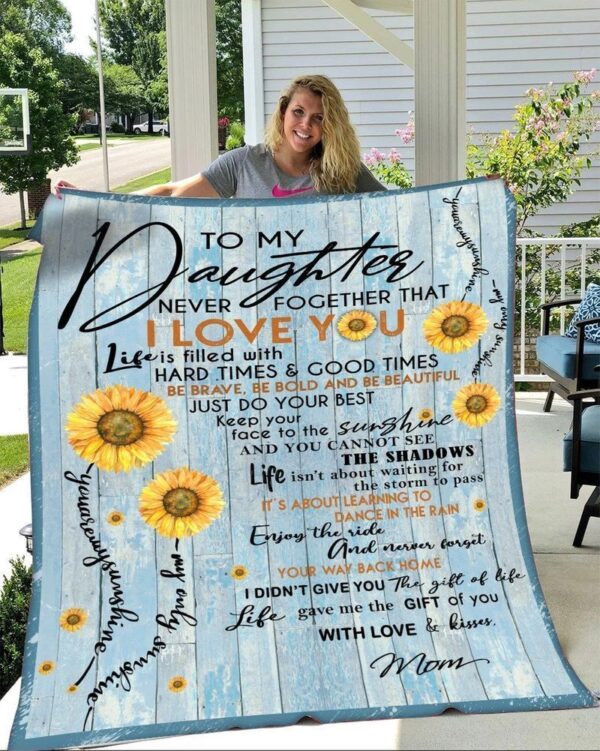 TO MY
Daughter
NEVER FOGETHER THAT
I LOVE YOU
Life is filled with
HARD TIMES & GOOD TIMES
BE BRAVE, BE BOLD AND BE BEAUTIFUL
JUST DO YOUR BEST
Keep your
face to the sunshine
AND YOU CANNOT SEE
THE SHADOWS
Life isn't about waiting for
the storm to pass
IT'S ABOUT LEARNING TO
DANCE IN THE RAIN
Enjoy the ride
And nerver forget
YOUR WAY BACK HOME
I DIDN'T GIVE YOU The gift of life
Life gave me the GIFT OF YOU
WITH LOVE & kisses,
Mom
you are my sunshine
my only sunshine
you are my sunshine
my only sunshine